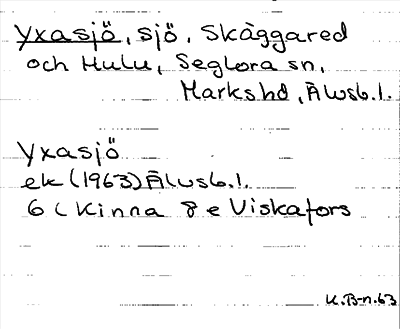 Yxasjö, sjö, Skäggared
och Hulu, Seglora sn,
Markshd, Älvsb.l.
Yxasjö
ek (1963) Älvsb.l.
6 C Kinna 8 e Viskafors
U.B-n.63